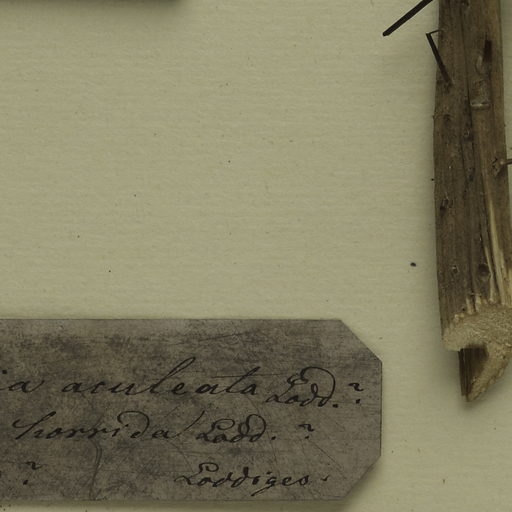 ia aculeata Lodd.?
horrida Lodd. ?
? Loddiges.